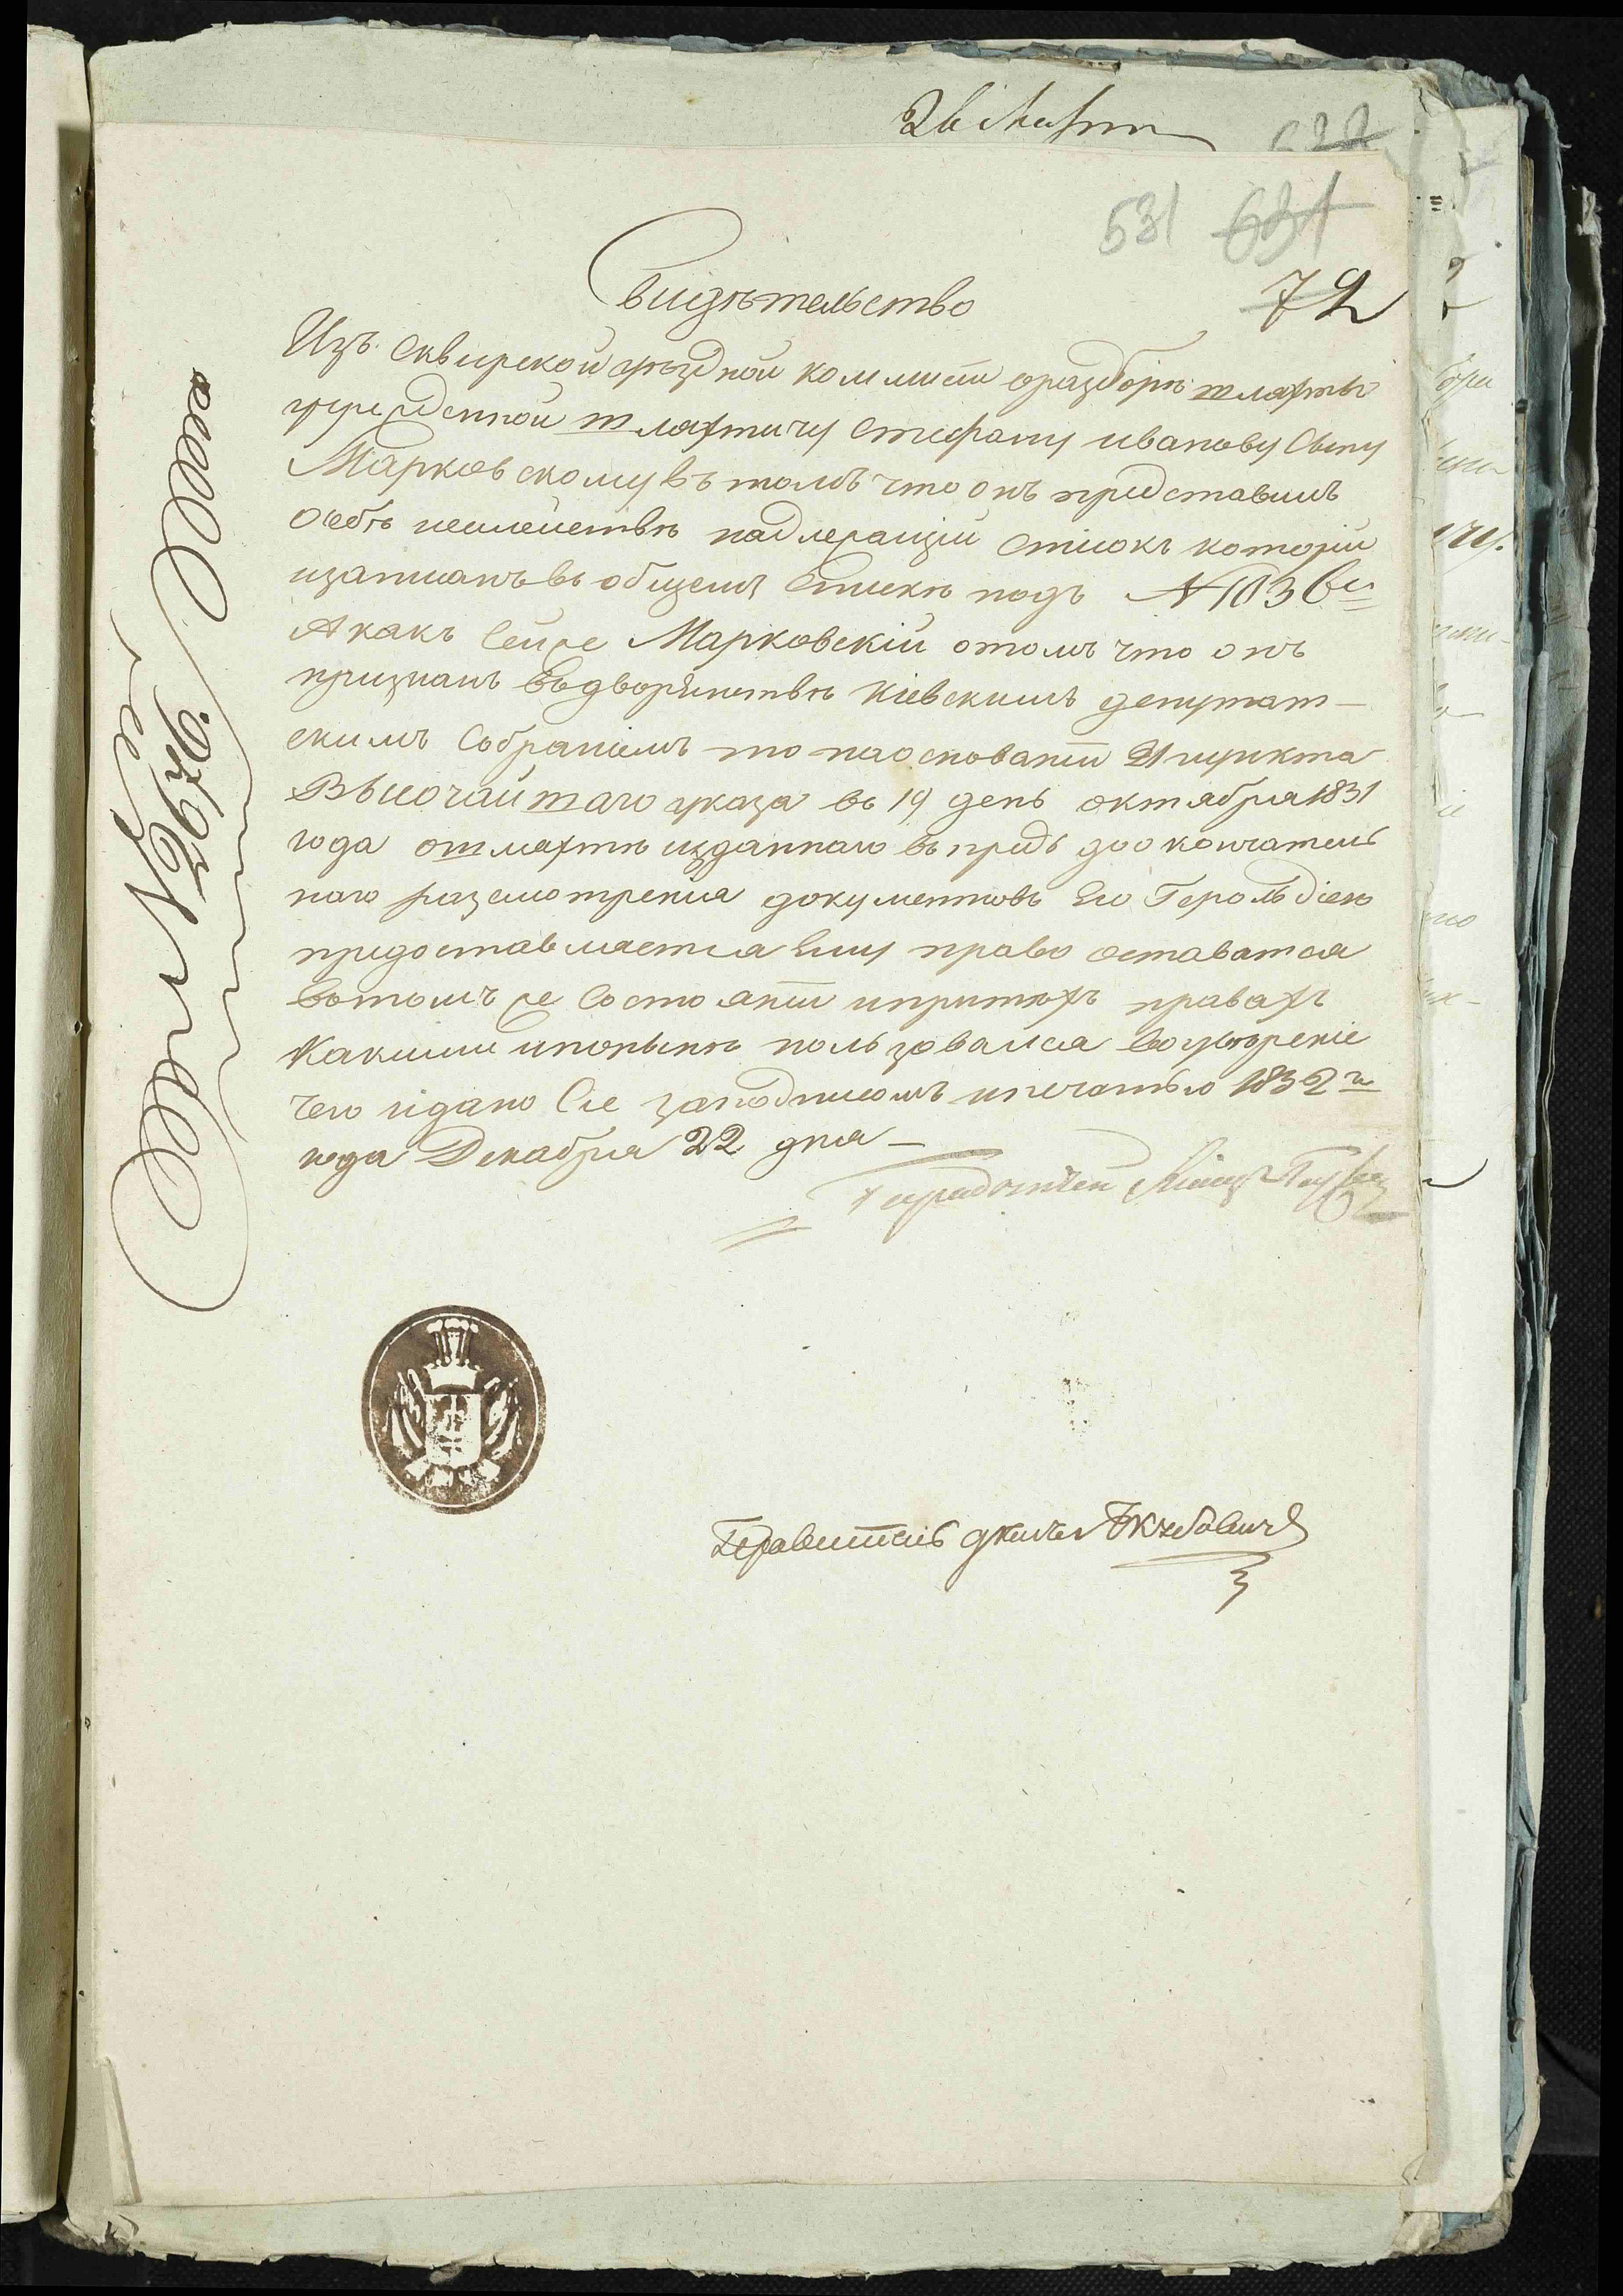 531 631
72
Свидѣтельство
Изъ Сквирской уѣздной коммисіи оразборѣ шляхты
учрежденной шляхтичу Стефану иванову Сыну
Марковскому въ томъ что онъ представилъ
осебѣ исемействѣ надлежащій списокъ которій
изаписанъ въ общемъ Спискѣ подъ № 103
А какъ Сейже Марковскій отомъ что онъ
признанъ въдворянствѣ Кіевскимъ депутат-
скимъ Собраніемъ то наоснованіи 21 пункта
Высочайшаго указа въ 19 день октября 1831
года ошляхтѣ изданнаго въпредь доокончатель
наго разсмотренія документовъ Его Герольдіею
предоставляется Ему право оставатся
вътомъ же Состояніи ипритѣхъ правахъ
Какими ипонынѣ пользовался воувѣреніе
чего идано Сіе заподписомъ ипечатью 1832го
года Декабря 22 дня—